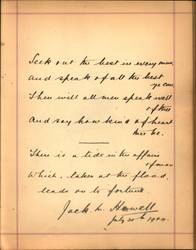 Seek out the best in every man
And speak of all the best
ye can
Then will all men speak well
of thee
And say how kind of heart
thou be.
There is a tide in the affairs
of man
Which, taken at the flood,
leads on to fortune
Jack
July